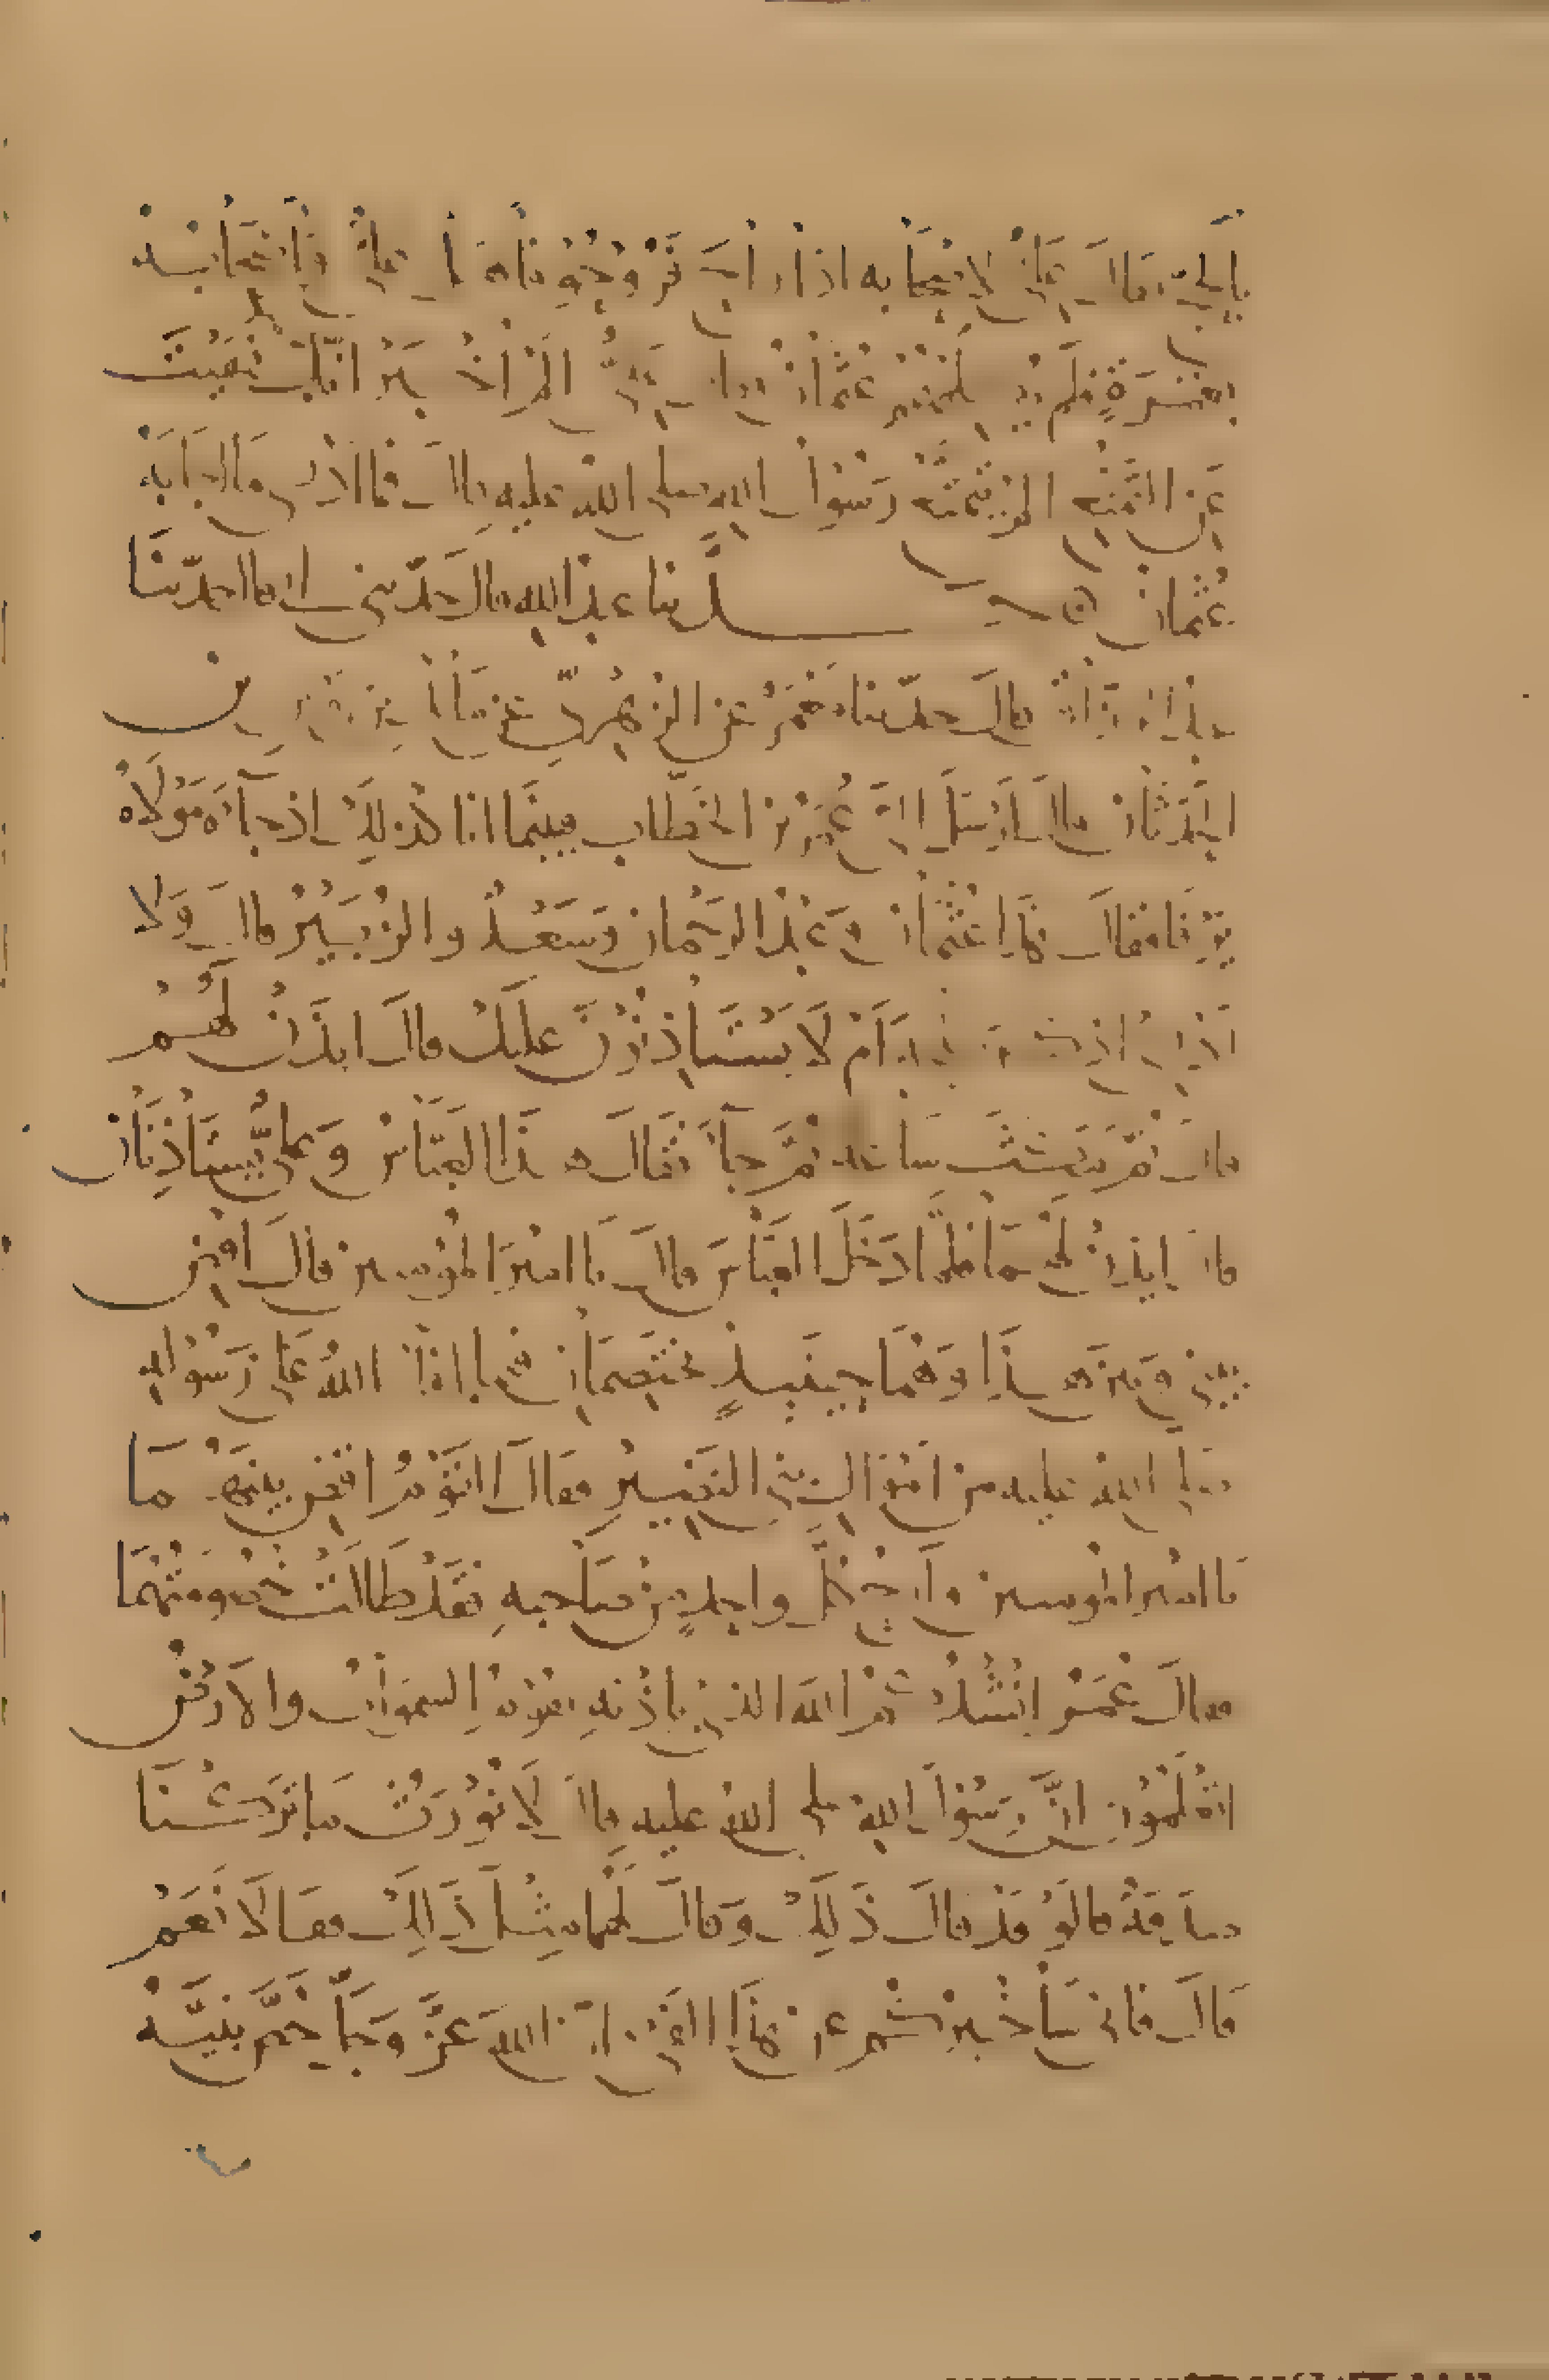 بالحج فقال علي لاصحابه اذا راح فروحوا فاهل علي واصحابه
بعمرة فلم يكلمهم عثمان فقال علي الم اخبر انك نهيت
عن التمتع الم يتمتع رسول الله صلى الله عليه قال فما ادري ما اجابه
عثمان حدثنا عبد الله قال حدثني ابي قال حدثنا
عبد الرزاق قال حدثنا معمر عن الزهري عن مالك بن اوس بن
الحدثان قال ارسل الي عمر بن الخطاب فبينما انا كذلك اذ جاءه مولاه
يرفا فقال هذا عثمان وعبد الرحمان وسعد والزبير قال ولا
ادري اذكر طلحة ام لا يستاذنون عليك قال ايذن لهم
قال ثم مكث ساعة ثم جاء فقال هذا العباس وعلي يستاذنان
قال ايذن لهما فلما دخل العباس قال يا امير المومنين قال اقض
بيني وبين هذا وهما حينيذ يختصمان فيما افا الله على رسوله
صلى الله عليه من اموال بني النضير فقال القوم اقض بينهما
يا امير المومنين وارح كل واحد من صاحبه فقد طالت خصومتهما
فقال عمر انشدكم الله الذي باذنه تقوم السموات والارض
اتعلمون ان رسول الله صلى الله عليه قال لا نورث ما تركنا
صدقة قالوا قد قال ذلك وقال لهما مثل ذلك فقالا نعم
قال فاني ساخبركم عن هذا الفي ان الله عز وجل خص نبيه